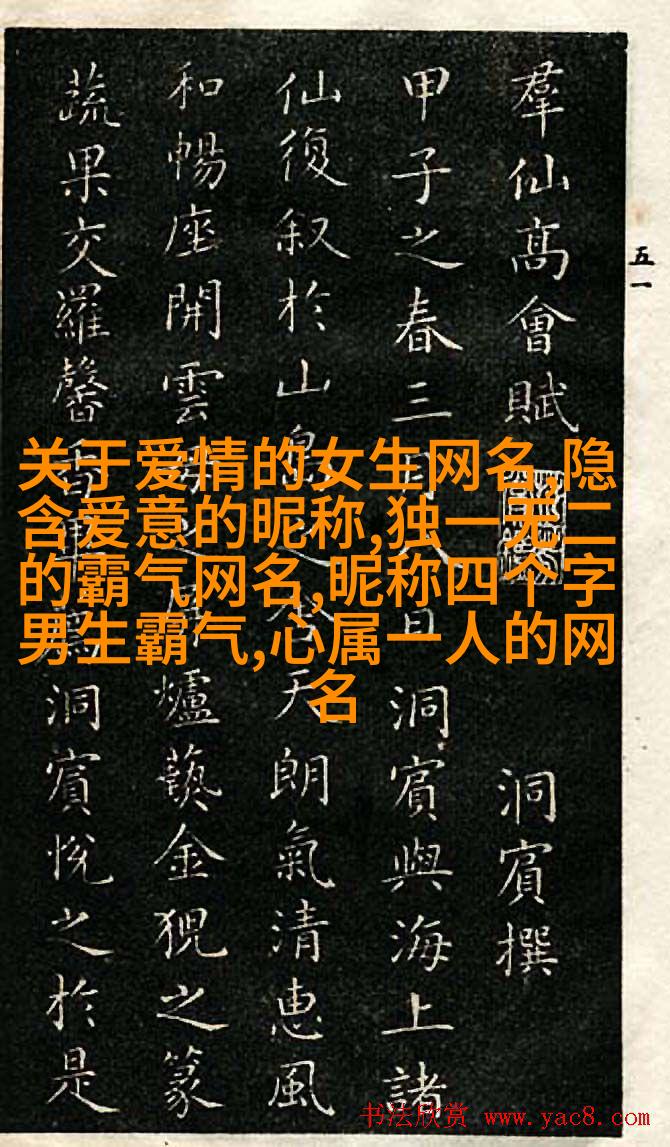 羣仙髙會賦
洞賓撰
甲子之春三
洞賓與海上諸
仙復叙於山島
天朗氣清惠風
和暢座開雲
爐藝金猊之篆
蔬果交羅馨香
洞賓悅之於是
五一
关于爱情的女生网名,隐
含爱意的昵称,独一无二
的霸气网名,昵称四个字
男生霸气,心属一人的网
名
书法欣赏 www.yac8.com